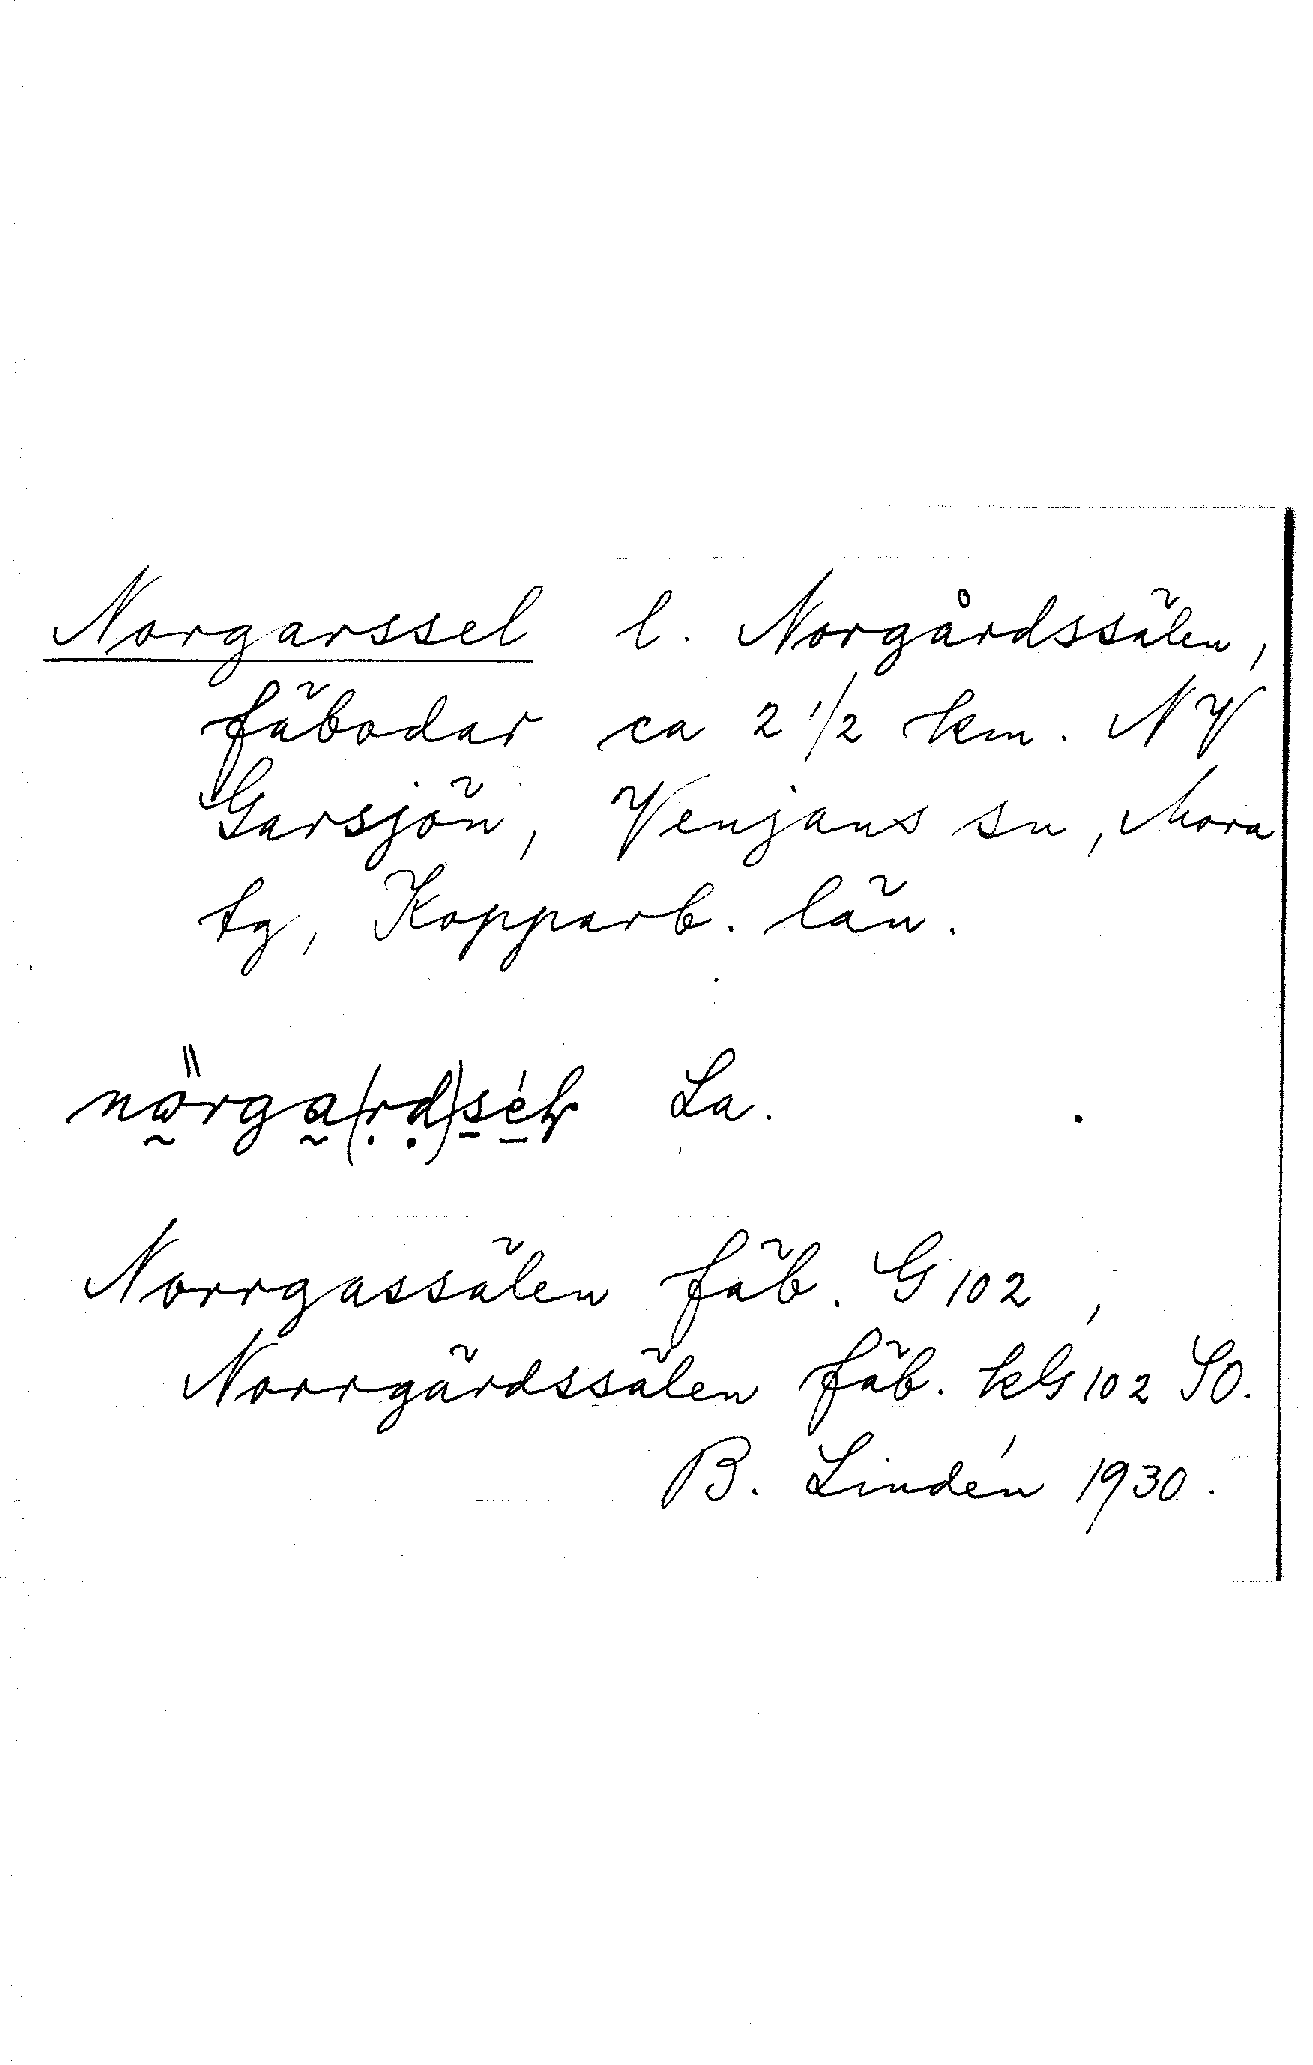 Norgarssel l. Norgårdssälen,
fäbodar ca 2 1/2 km. NV
Garsjön, Venjans sn, Mora
tg, Kopparb. län.
La.
Norrgassälen fäb. G 102,
Norrgärdssälen fäb. kG 102 SO.
B. Lindén 1930.